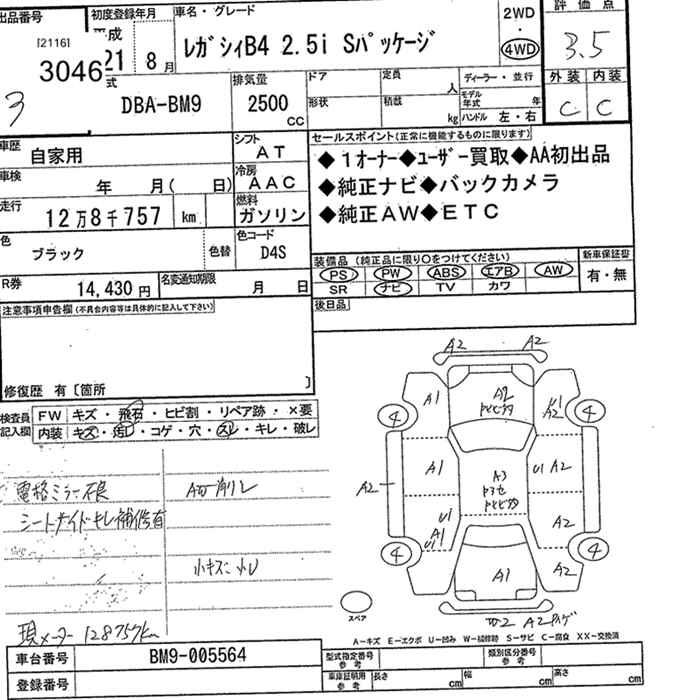 出品番号
[2116]
3046
3
初度登録年月
平成
21 8月
車名・グレード
レガシィB4 2.5i Sパッケージ
2WD
・
4WD
評価点
3.5
外装 内装
C C
式
DBA-BM9
排気量
2500
CC
ドア
形状
定員
人
積載
kg
ディーラー・並行
モデル年式
年
ハンドル 左・右
車歴
自家用
シフト
AT
車検
年 月( 日)
冷房
AAC
走行
12万8千757 km
燃料
ガソリン
色
ブラック
色替
色コード
D4S
R券
14,430円
名変通知期限
月 日
セールスポイント(正常に機能するものに限ります)
◆1オーナー◆ユーザー買取◆AA初出品
◆純正ナビ◆バックカメラ
◆純正AW◆ETC
装備品(純正品に限り〇をつけてください)
PS PW ABS エアB AW
SR ナビ TV カワ
新車保証書
有・無
後日品
注意事項申告欄(不具合内容等は具体的に記入して下さい)
修復歴 有〔箇所 〕
検査員
記入欄
FW キズ・飛石・ヒビ割・リペア跡・×要
内装 キズ・汚レ・コゲ・穴・スレ・キレ・破レ
電格ミラー不良
シートサイドキレ補修有
小キズ凹
現メーター 128757km
A2 A2
A1
A2
U1
A2
4 4
A1
U1 A2
A3
A2
U1
A1
U1
A2
4 4
A1
A2
A2
スペア
A-キズ E-エクボ U-凹み W-補修跡 S-サビ C-腐食 XX-交換済
車台番号
BM9-005564
登録番号
型式指定番号
参考
類別区分番号
参考
車庫証明用
参考
長さ
cm
幅
cm
高さ
cm